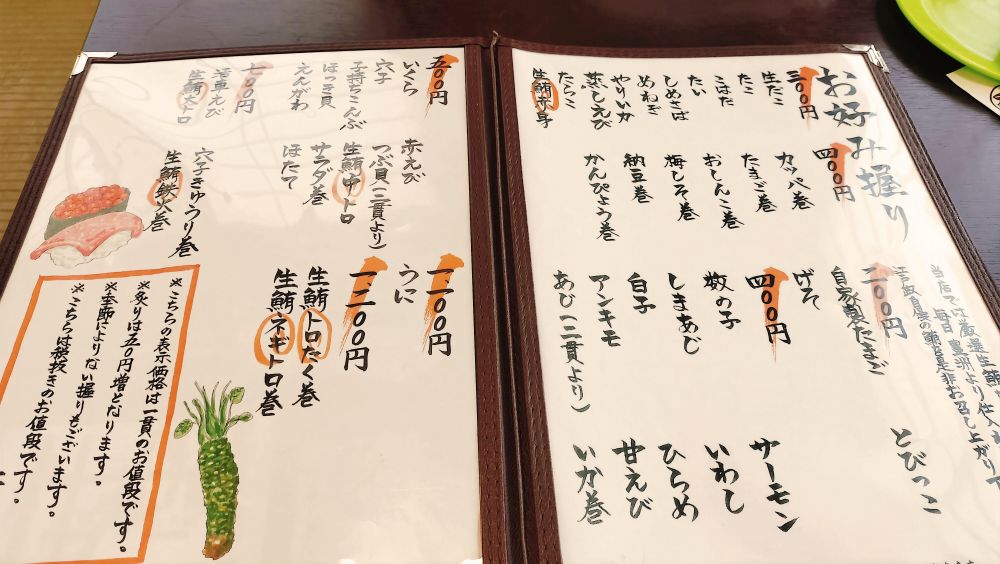 お好み握り
当店では厳選生鮪
毎日豊洲より仕入
自慢の鮪を是非お召し上がり下
二〇〇円
自家製たまご
げそ
とびっこ
三〇〇円
生だこ
たこ
こはだ
たい
しめさば
めねぎ
やりいか
蒸しえび
たらこ
生鮪赤身
四〇〇円
カッパ巻
たまご巻
おしんこ巻
梅しそ巻
納豆巻
かんぴょう巻
四〇〇円
数の子
しまあじ
白子
アンキモ
あじ(二貫より)
サーモン
いわし
ひらめ
甘えび
いか巻
五〇〇円
いくら
穴子
子持ちこんぶ
ほっき貝
えんがわ
赤えび
つぶ貝(二貫より)
生鮪中トロ
サラダ巻
ほたて
七〇〇円
活車えび
生鮪大トロ
穴子きゅうり巻
生鮪鉄火巻
一、一〇〇円
うに
一、二〇〇円
生鮪トロたく巻
生鮪ネギトロ巻
※こちらの表示価格は一貫のお値段です。
※炙りは五〇円増となります。
※季節によりない握りもございます。
※こちらは税抜きのお値段です。